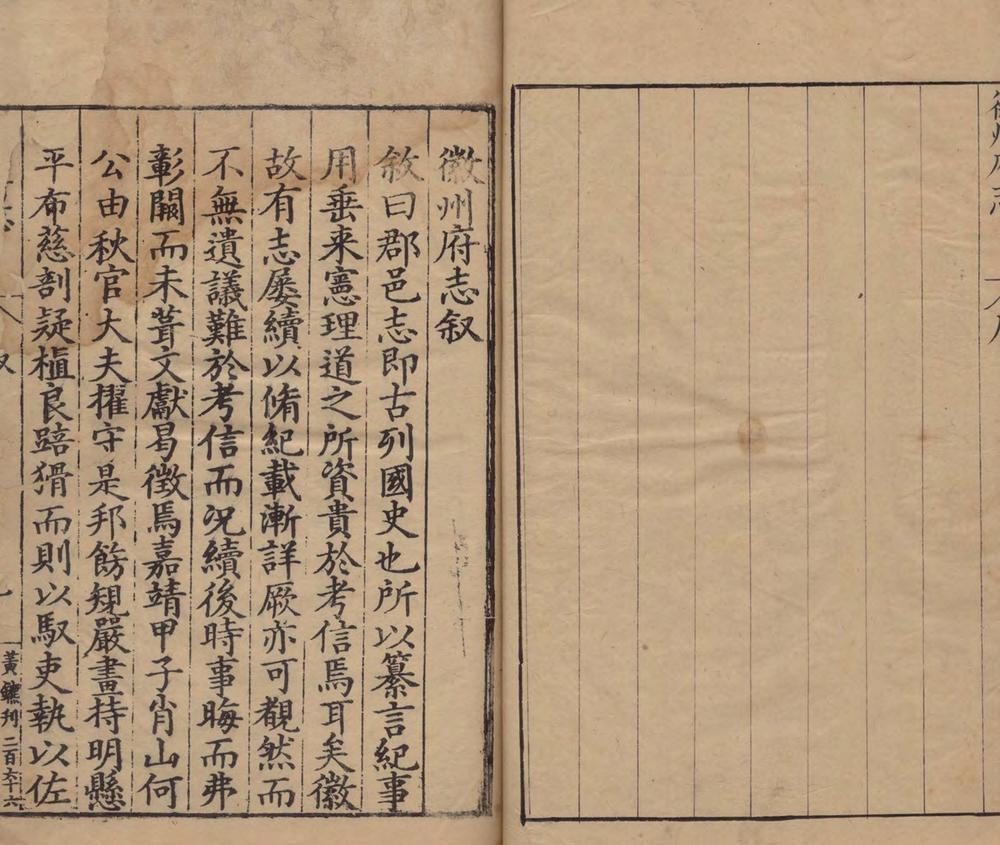 徽州府志叙
敘曰郡邑志即古列國史也所以纂言紀事
用垂来憲理道之所資貴於考信焉耳矣徽
故有志屡續以脩紀載漸詳厥亦可覩然而
不無遺議難於考信而况續後時事晦而弗
彰闕而未葺文獻曷徴焉嘉靖甲子肖山何
公由秋官大夫擢守是邦飭䂓嚴畫持明懸
平布慈剖疑植良踣猾而則以馭吏執以佐
黃鑣刋 二百六十六